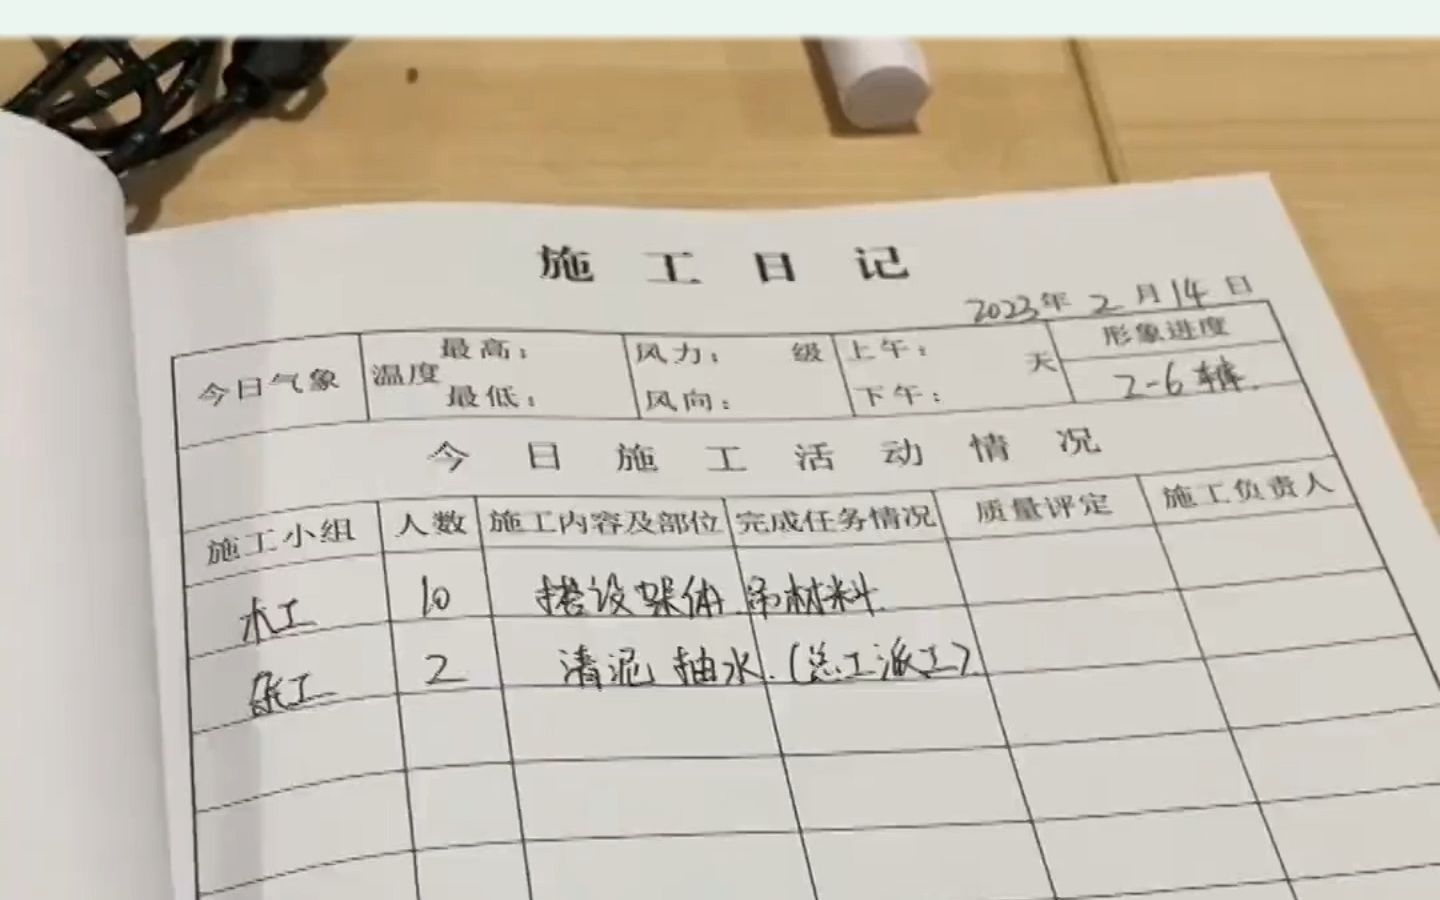 施工日记
2023年2月14日
今日气象 温度 最高： 风力： 级 上午： 天 形象进度
最低： 风向： 下午： 2-6轴.
今日施工活动情况
施工小组 人数 施工内容及部位 完成任务情况 质量评定 施工负责人
木工 10 搭设架体.吊材料.
杂工 2 清泥 抽水.(总工派工)